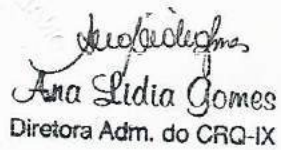 Ana Lidia Gomes
Diretora Adm. do CRQ-IX